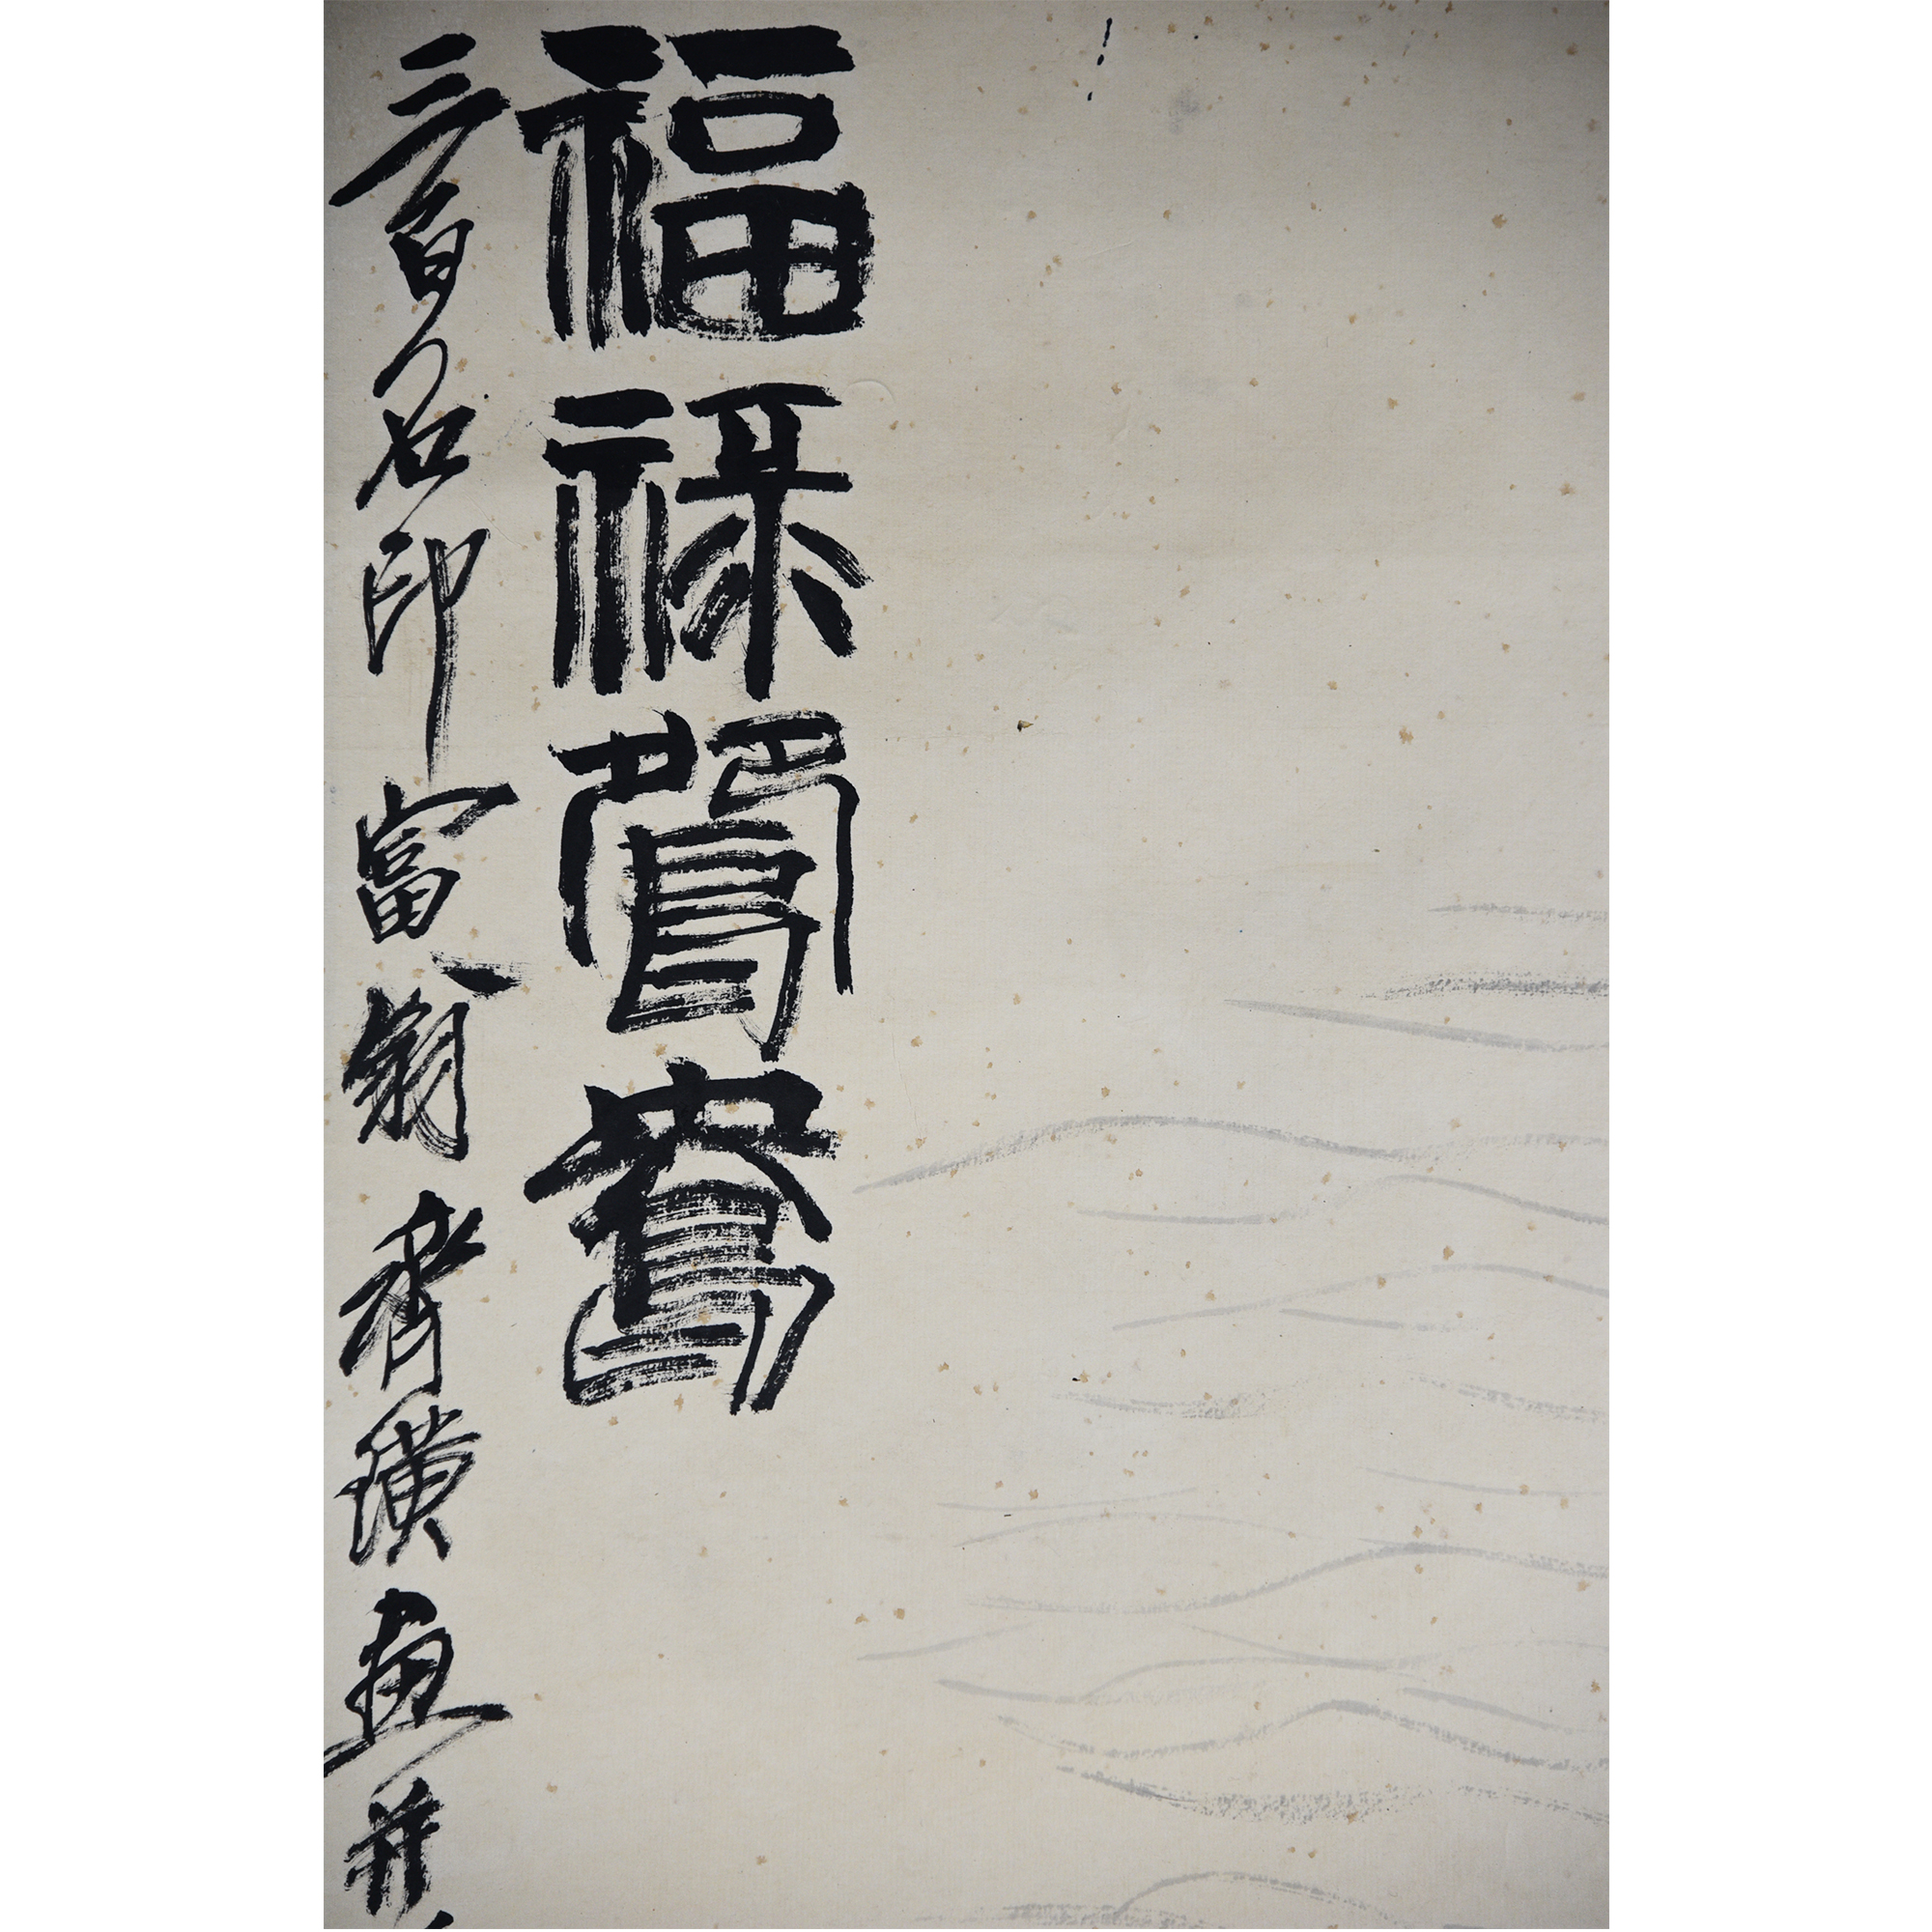 福祿鴛鴦
三百石印富翁齊璜畫并